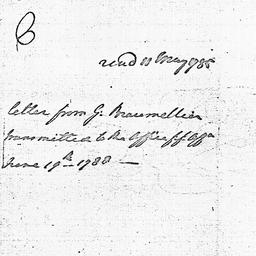 B
read 11 May 1785
letter from G. Beaumellier
transmitted to the Office ff Affa
June 19th 1788 —